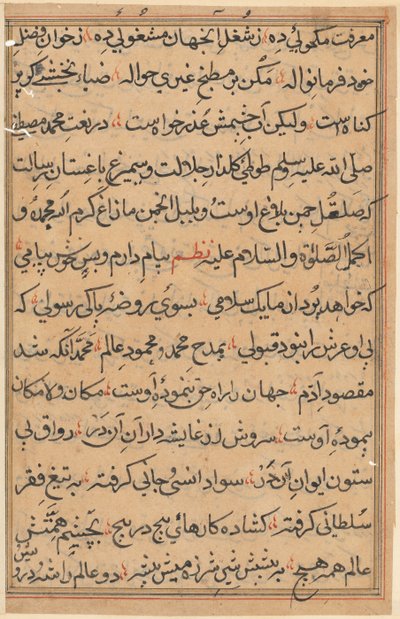 معرفت مکحولی ده ز شغل اینجهان مشغولی ده ز خوان فضل
خود فرما نواله مکن بر مطبخ غیری حواله ضیاء نخشبی گر پر
گناه است ولیکن آب چشمش عذر خواه است در نعت محمد مصطفی
صلی الله علیه وسلم طوطی گلذار جلالت و سیمرغ باغستان رسالت
که صلصل چمن بلاغ اوست و بلبل انجمن مازاغ کرم الله محمده و
اکمل الصلوة والسلام علیه نظم پیام دارم و بس خوش پیامی
که خواهد بود از ما یک سلامی بسوی روضهٔ پاکی رسولی که
بی او عرش را نبود قبولی بمدح محمد و محمود عالم محمد آنکه شد
مقصود آدم جهان را راه حق بنمودهٔ اوست مکان و لامکان
پیمودهٔ اوست سروش از غایشه داران آن در رواق بی
ستون ایوان آن در سواد انسی و جانی گرفته به تیغ فقر
سلطانی گرفته گشاده کارهای پیچ در پیچ بچشم همتش
عالم همه هیچ به پیشش شیر شرزه میش بیشه دو عالم را شده